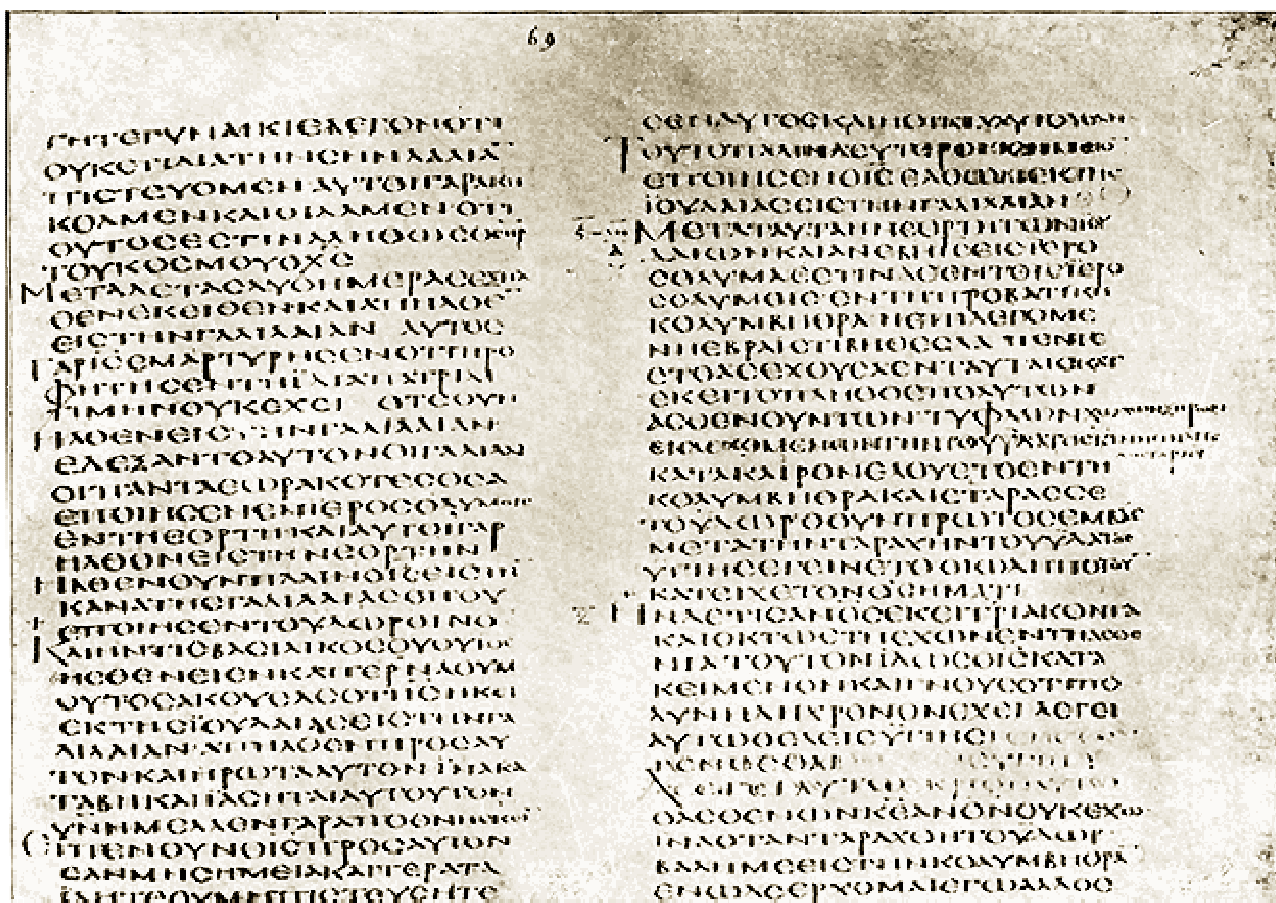 ΤΗΤΕΓΥΝΑΙΚΙΕΛΕΓΟΝΟΤΙ
ΟΥΚΕΤΙΔΙΑΤΗΝϹΗΝΛΑΛΙΑ
ΠΙϹΤΕΥΟΜΕΝΑΥΤΟΙΓΑΡΑΚΗ
ΚΟΑΜΕΝΚΑΙΟΙΔΑΜΕΝΟΤΙ
ΟΥΤΟϹΕϹΤΙΝΑΛΗΘΩϹΟϹΩΤΗΡ
ΤΟΥΚΟϹΜΟΥΟΧϹ
ΜΕΤΑΔΕΤΑϹΔΥΟΗΜΕΡΑϹΕΞΗΛ
ΘΕΝΕΚΕΙΘΕΝΚΑΙΑΠΗΛΘΕ
ΕΙϹΤΗΝΓΑΛΙΛΑΙΑΝ ΑΥΤΟϹ
ΓΑΡΙϹΕΜΑΡΤΥΡΗϹΕΝΟΤΙΠΡΟ
ΦΗΤΗϹΕΝΤΗΙΔΙΑΠΑΤΡΙΔΙ
ΤΙΜΗΝΟΥΚΕΧΕΙ ΟΤΕΟΥΝ
ΗΛΘΕΝΕΙϹΤΗΝΓΑΛΙΛΑΙΑΝ
ΕΔΕΞΑΝΤΟΑΥΤΟΝΟΙΓΑΛΙΛΑΙ
ΟΙΠΑΝΤΑΕΩΡΑΚΟΤΕϹΟϹΑ
ΕΠΟΙΗϹΕΝΕΝΙΕΡΟϹΟΛΥΜΟΙϹ
ΕΝΤΗΕΟΡΤΗΚΑΙΑΥΤΟΙΓΑΡ
ΗΛΘΟΝΕΙϹΤΗΝΕΟΡΤΗΝ
ΗΛΘΕΝΟΥΝΠΑΛΙΝΟΙϹΕΙϹΤΗ
ΚΑΝΑΤΗϹΓΑΛΙΛΑΙΑϹΟΠΟΥ
ΕΠΟΙΗϹΕΝΤΟΥΔΩΡΟΙΝΟ
ΚΑΙΗΝΤΙϹΒΑϹΙΛΙΚΟϹΟΥΟΥΙΟϹ
ΗϹΘΕΝΕΙΕΝΚΑΠΕΡΝΑΟΥΜ
ΟΥΤΟϹΑΚΟΥϹΑϹΟΤΙΙϹΗΚΕΙ
ΕΚΤΗϹΪΟΥΔΑΙΑϹΕΙϹΤΗΝΓΑ
ΛΙΛΑΙΑΝΑΠΗΛΘΕΝΠΡΟϹΑΥ
ΤΟΝΚΑΙΗΡΩΤΑΑΥΤΟΝΪΝΑΚΑ
ΤΑΒΗΚΑΙΙΑϹΗΤΑΙΑΥΤΟΥΤΟΝ
ΥΝΗΜΕΛΛΕΝΓΑΡΑΠΟΘΝΗϹΚΕΙ
ΕΙΠΕΝΟΥΝΟΙϹΠΡΟϹΑΥΤΟΝ
ΕΑΝΜΗϹΗΜΕΙΑΚΑΙΤΕΡΑΤΑ
ΪΔΗΤΕΟΥΜΗΠΙϹΤΕΥϹΗΤΕ
69
ϹΕΝΑΥΤΟϹΚΑΙΗΟΙΚΙΑΑΥΤΟΥΟΛΗ
ΤΟΥΤΟΠΑΛΙΝΔΕΥΤΕΡΟΝϹΗΜΕΙΟ
ΕΠΟΙΗϹΕΝΟΙϹΕΛΘΩΝΕΚΤΗϹ
ΪΟΥΔΑΙΑϹΕΙϹΤΗΝΓΑΛΙΛΑΙΑΝ
ΜΕΤΑΤΑΥΤΑΗΝΕΟΡΤΗΤΩΝΪΟΥ
ΔΑΙΩΝΚΑΙΑΝΕΒΗΙϹΕΙϹΙΕΡΟ
ϹΟΛΥΜΑΕϹΤΙΝΔΕΕΝΤΟΙϹΪΕΡΟ
ϹΟΛΥΜΟΙϹΕΝΤΗΠΡΟΒΑΤΙΚΗ
ΚΟΛΥΜΒΗΘΡΑΗΕΠΙΛΕΓΟΜΕ
ΝΗΕΒΡΑΪϹΤΙΒΗΘΕϹΔΑ ΠΕΝΤΕ
ϹΤΟΑϹΕΧΟΥϹΑΕΝΤΑΥΤΑΙϹΚΑΤ
ΕΚΕΙΤΟΠΛΗΘΟϹΠΟΛΥΤΩΝ
ΑϹΘΕΝΟΥΝΤΩΝΤΥΦΛΩΝΧΩΛΩΝΞΗΡΩΝ
ΚΑΤΑΚΑΙΡΟΝΕΛΟΥΕΤΟΕΝΤΗ
ΚΟΛΥΜΒΗΘΡΑΚΑΙΕΤΑΡΑϹϹΕ
ΤΟΥΔΩΡΟΟΥΝΠΡΩΤΟϹΕΜΒΑϹ
ΜΕΤΑΤΗΝΤΑΡΑΧΗΝΤΟΥΥΔΑΤΟϹ
ΥΓΙΗϹΕΓΕΙΝΕΤΟΟΙΩΔΗΠΟΤΟΥ
ΚΑΤΕΙΧΕΤΟΝΟϹΗΜΑΤΙ
ΗΝΔΕΤΙϹΑΝΟϹΕΚΕΙΤΡΙΑΚΟΝΤΑ
ΚΑΙΟΚΤΩΕΤΗΕΧΩΝΕΝΤΗΑϹΘΕ
ΝΙΑΤΟΥΤΟΝΪΔΩΝΟΙϹΚΑΤΑ
ΚΕΙΜΕΝΟΝΚΑΙΓΝΟΥϹΟΤΙΠΟ
ΛΥΝΗΔΗΧΡΟΝΟΝΕΧΕΙΛΕΓΕΙ
ΑΥΤΩΘΕΛΕΙϹΥΓΙΗϹ
ΟΑϹΘΕΝΩΝΚΕΑΝΟΝΟΥΚΕΧΩ
ΪΝΑΟΤΑΝΤΑΡΑΧΘΗΤΟΥΔΩΡ
ΒΑΛΗΜΕΕΙϹΤΗΝΚΟΛΥΜΒΗΘΡΑ
ΕΝΩΔΕΕΡΧΟΜΑΙΕΓΩΑΛΛΟϹ